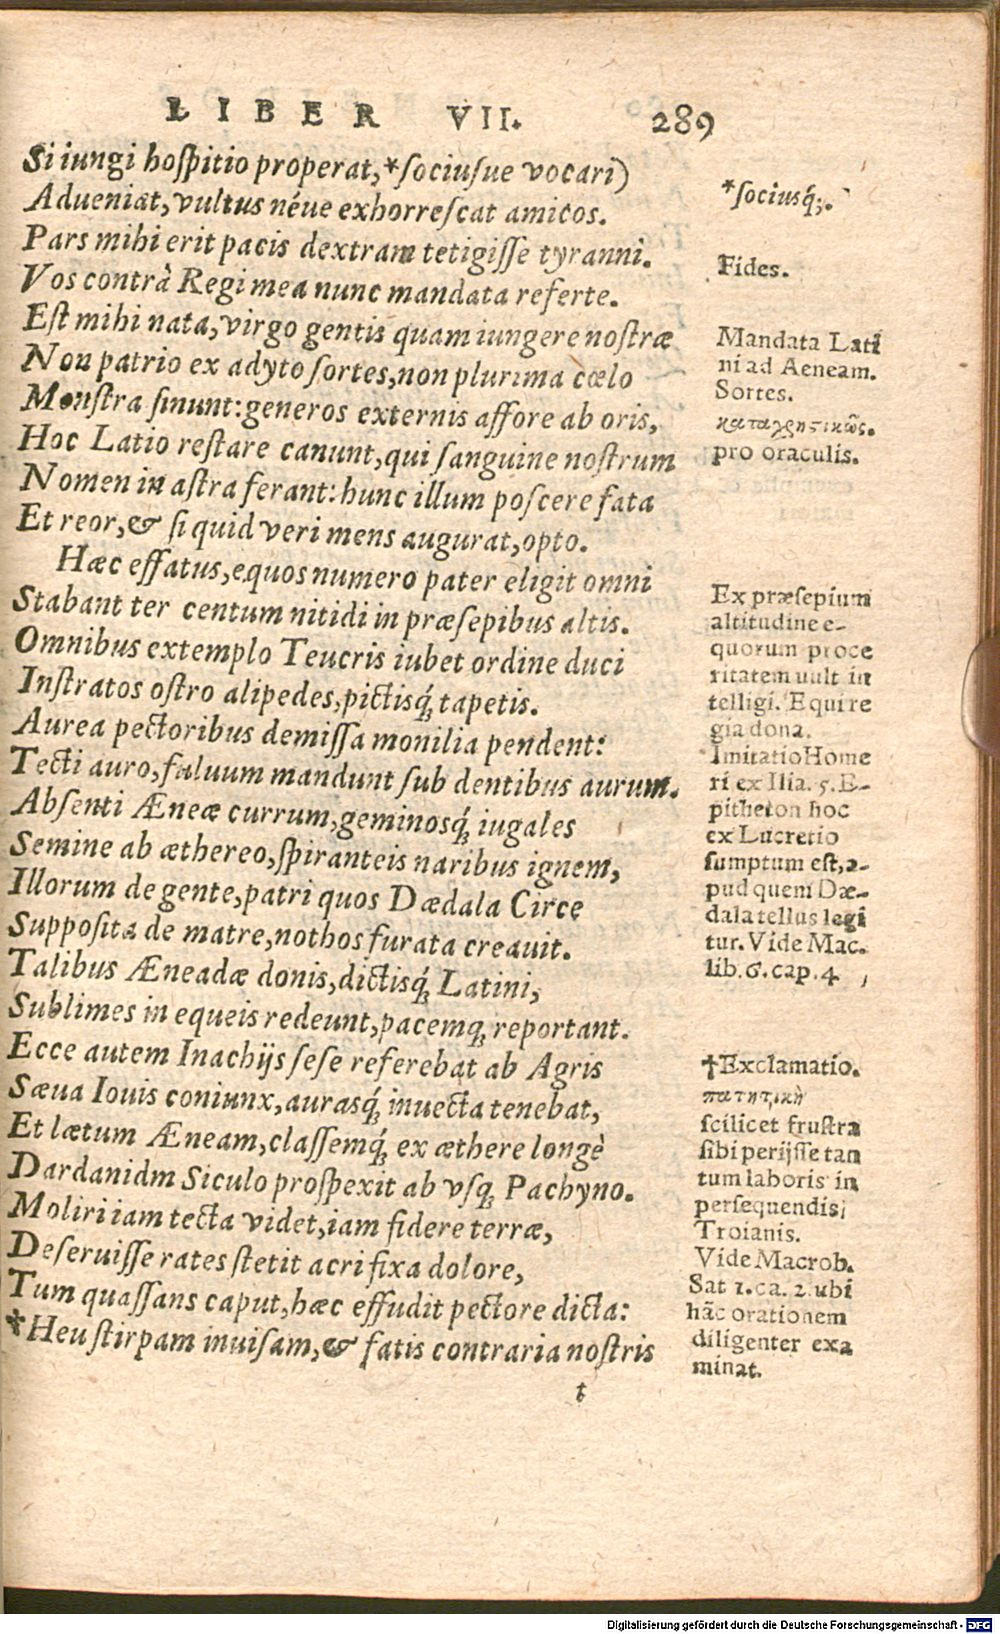 LIBER VII. 289
Si iungi hoſpitio properat,*ſociuſue vocari)
Adueniat, vultus néue exhorreſcat amicos.
Pars mihi erit pacis dextram tetigiſſe tyranni.
Vos contrà Regi mea nunc mandata referte.
Eſt mihi nata, virgo gentis quam iungere noſtræ
Non patrio ex adyto ſortes, non plurima cœlo
Monſtra ſinunt: generos externis affore ab oris,
Hoc Latio reſtare canunt, qui ſanguine noſtrum
Nomen in aſtra ferant: hunc illum poſcere fata
Et reor, & ſi quid veri mens augurat, opto.
Hæc effatus, equos numero pater eligit omni
Stabant ter centum nitidi in præſepibus altis.
Omnibus extemplo Teucris iubet ordine duci
Inſtratos oſtro alipedes, pictisq́; tapetis.
Aurea pectoribus demiſſa monilia pendent:
Tecti auro, fuluum mandunt ſub dentibus aurum.
Abſenti Æneæ currum, geminosq́; iugales
Semine ab æthereo, ſpiranteis naribus ignem,
Illorum de gente, patri quos Dædala Circe
Suppoſita de matre, nothos furata creauit.
Talibus Æneadæ donis, dictisq́; Latini,
Sublimes in equeis redeunt, pacemq; reportant.
Ecce autem Inachijs ſeſe referebat ab Agris
Sæua Iouis coniunx, aurasq́; inuecta tenebat,
Et lætum Æneam, claſſemq́; ex æthere longè
Dardanidm Siculo proſpexit ab vſq; Pachyno.
Moliri iam tecta videt, iam fidere terræ,
Deſeruiſſe rates ſtetit acri fixa dolore,
Tum quaſſans caput, hæc effudit pectore dicta:
†Heu ſtirpam inuiſam, & fatis contraria noſtris
t
*ſociusq́;.
Fides.
Mandata Lati
ni ad Aeneam.
Sortes.
καταχρηστικῶς.
pro oraculis.
Ex præſepium
altitudine e-
quorum proce
ritatem uult in
telligi. Equi re
gia dona.
Imitatio Home
ri ex Ilia. 5. E-
pitheton hoc
ex Lucretio
ſumptum eſt, a-
pud quem Dæ-
dala tellus legi
tur. Vide Mac.
lib. 6. cap. 4
†Exclamatio.
παθητικὴ
ſcilicet fruſtra
ſibi perijſſe tan
tum laboris in
perſequendis
Troianis.
Vide Macrob.
Sat 1. ca. 2. ubi
hãc orationem
diligenter exa
minat.
Digitalisierung gefördert durch die Deutsche Forschungsgemeinschaft - DFG